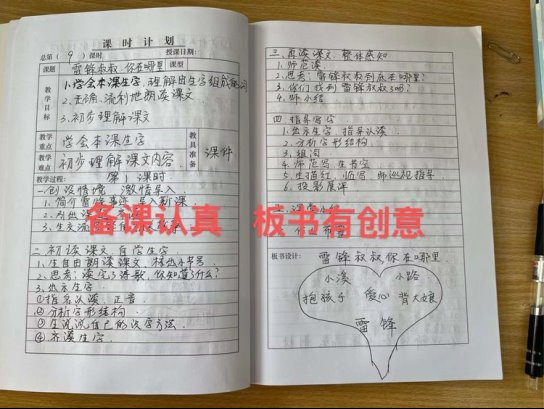 课 时 计 划
总第（9）课时 授课日期:
课题 雷锋叔叔,你在哪里 课型
教学目标
1.学会本课生字,理解由生字组成的词
2.正确、流利地朗读课文
3.初步理解课文
教学重点 学会本课生字
教学难点 初步理解课文内容
教具准备 课件
教学过程: 第1课时
一.创设情境 激情导入
1.简介雷锋事迹,导入新课
二.初读课文,自学生字
1.生自由朗读课文
2.思考:读完了诗歌,你知道了什么?
3.出示生字
①指名认读,正音
②分析字形结构
③说说自己的识字方法
④齐读生字
三.再读课文,整体感知
1.师范读
2.思考:雷锋叔叔到底在哪里?
3.你们找到雷锋叔叔了吗?
4.师小结
四.指导写字
1.出示生字,指导认读
2.分析字形结构
3.组词
4.师范写 生书空
5.生描红,临写,师巡视指导
6.投影展评
备课认真 板书有创意
板书设计: 雷锋叔叔,你在哪里
小溪 小路
抱孩子 爱心 背大娘
雷锋